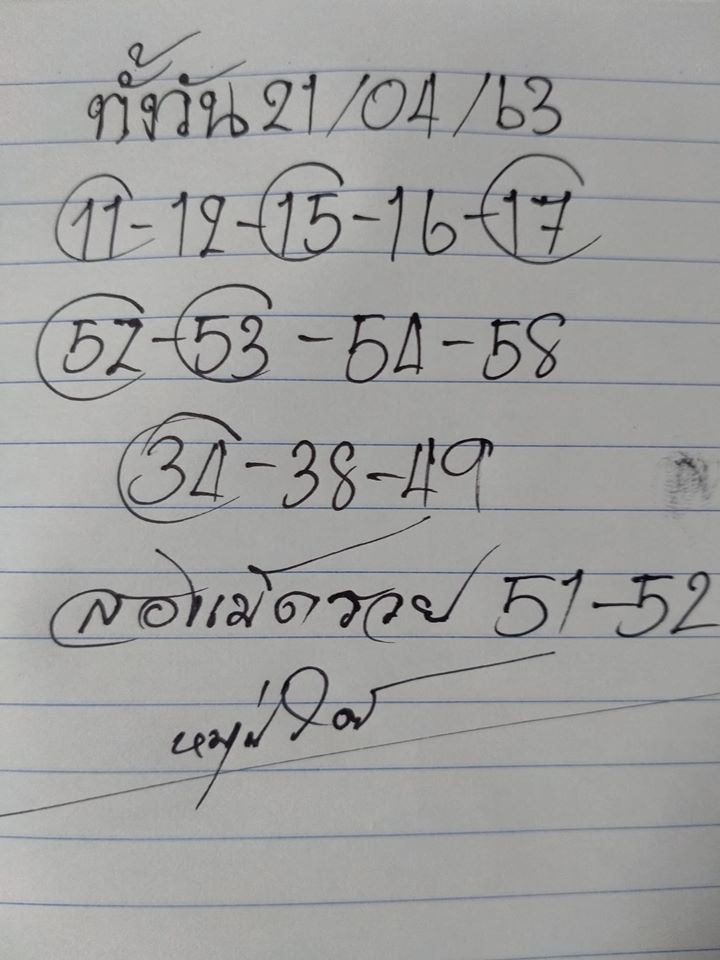 ทั้งวัน 21/04/63
11-12-15-16-17
52-53-54-58
34-38-49
สองเม็ดรวย 51-52